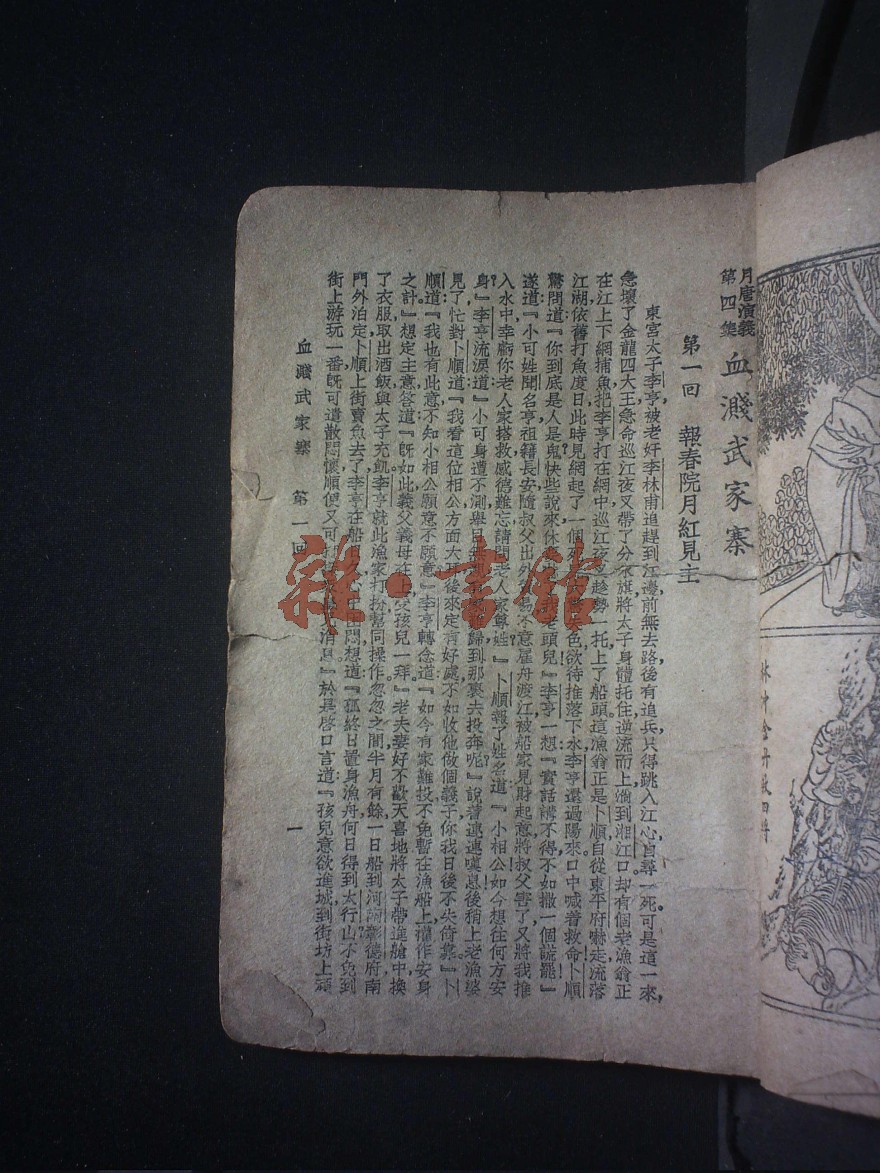 月唐演義
第四集
血濺武家寨
第一回 報春院月紅見主
東宮太子李亨被老奸李林甫追趕到江邊前無去路後有追兵只得跳入江心自尋一死可是這一來
急壞了金龍四大王急命巡江夜叉帶了分水旗將太子身體托住逆流而上淌到湘江口却有個老漁翁正
在江上下網捕魚把李亨打在網中巡江夜叉趁勢一托上了船頭這漁翁正是卜順自從東平府嚇走流落
江湖依舊打魚度日此時見網起了一個死 色欲待推落下水李亨還過陽來口中喊着救命卜順
驚問道『你到底是人是鬼快些說來休 老頭兒』李亨一想『實話講不得不如撒一個謊罷』
遂道『小可姓聞名亨祖籍長安隨叔父出外 易不意雇舟渡江被船家見財起意將叔父害了又將我推
入水中幸虧你老人家搭救感德難忘請問老人家尊姓』卜順報了姓名道『小相公如今想往何方安
身』李亨流淚道『小可身遭不測舉目無 歸到那裏去投奔呢』說着連連嘆息後稍上老漁婆
見了忙對卜順道『我看這位相公方面大耳後來定有好處不如收他做個義子你我日後不失倚靠』卜
順道『我也有此意不知小相公願意不願意』李亨轉念道『如今有家難投不免暫在漁船上權作安身
之計』想定主意答道『既如此義父義母在上受孩兒一拜』老夫妻好不歡天喜地將太子帶進艙中換
了衣服取出酒飯與太子充飢李亨就此漁家打扮幫同操作忽忽之間半月有餘一日船到河南彰德府南
門外泊定卜順上街賣魚去了李亨在船 心中 悶想道『孤終日置身漁舟何日得到太行山不免到
街上游玩一番既可遣散悶懷順便又可 消息』於是啓口言道『孩兒意欲進城到街坊上頑
血濺武家寨 第一回 一